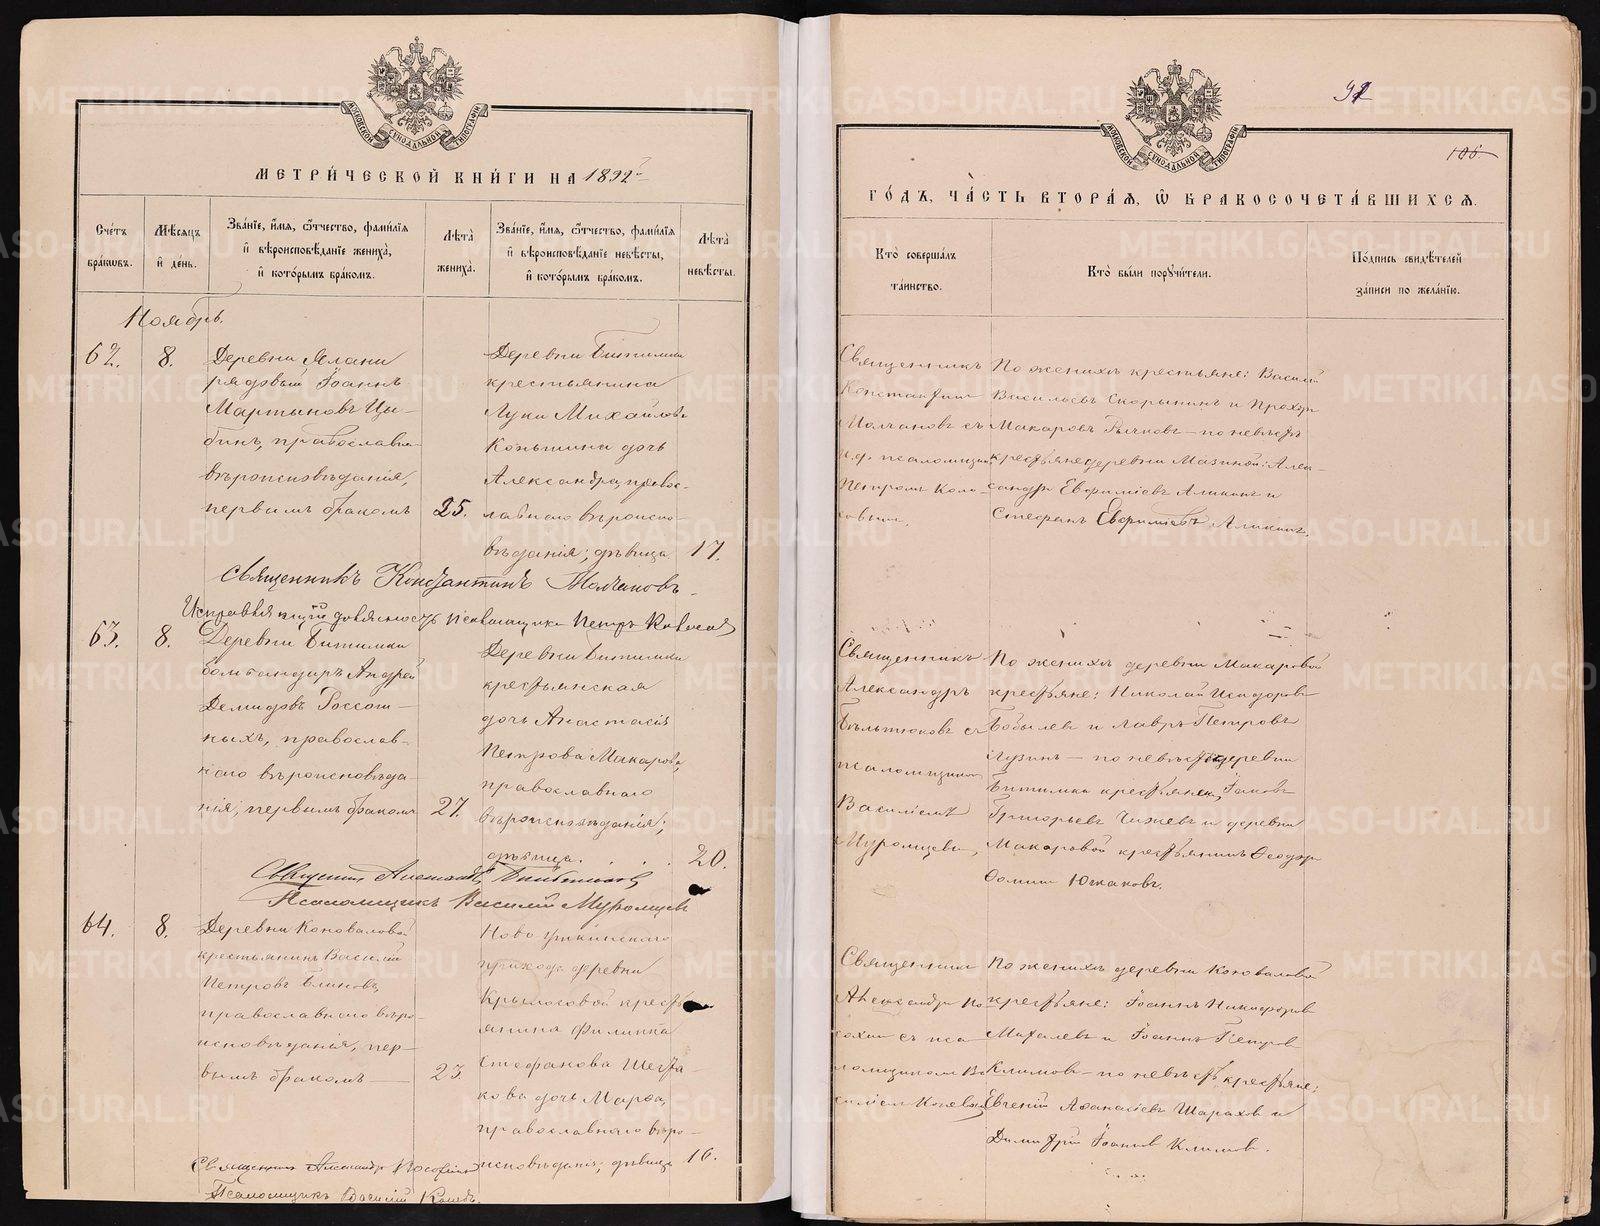 МОСКОВСКОЙ СѴНОДАЛЬНОЙ ТИПОГРАФІИ
МЕТРИ́ЧЕСКОЙ КНИ́ГИ НА 1892й
Сче́тъ бра́ковъ.
Мѣ́сяцъ и҆ де́нь.
Зва́нїе, и҆́мя, ѻ҆́тчество, фами́лїя
и҆ вѣроисповѣ́данїе жениха̀,
и҆ кото́рымъ бра́комъ.
Лѣ́та жениха̀.
Зва́нїе, и҆́мя, ѻ҆́тчество, фами́лїя
и҆ вѣроисповѣ́данїе невѣ́сты,
и҆ кото́рымъ бра́комъ.
Лѣ́та невѣ́сты.
Ноябрь.
62.
8.
Деревни Елани
рядовый Іоаннъ
Мартыновъ Цы-
бинъ, православна-
вѣроисповѣданія,
первымъ бракомъ
25.
Деревни Битимки
крестьянина
Луки Михайлова
Коньшина дочь
Александра, правос-
лавнаго вѣроиспо-
вѣданія; дѣвица
17.
Священникъ Константинъ Молчановъ.
Исправляющій должность псаломщика Петръ Колосов
63.
8.
Деревни Битимки
бомбандиръ Андрей
Демидовъ Россош-
ныхъ, православ-
наго вѣроисповѣда-
нія, первымъ бракомъ
27.
Деревни Битимки
крестьянская
дочь Анастасія
Петрова Макарова,
православнаго
вѣроисповѣданія;
дѣвица. . . .
20.
Священник Александръ
Псаломщикъ Василій Муромцевъ
64.
8.
Деревни Коноваловой
крестьянинъ Василій
Петровъ Блиновъ,
православнаго вѣро-
исповѣданія, пер-
вымъ бракомъ
23.
Ново уткинскаго
прихода деревни
Крылосовой кресть-
янина Филиппа
Стефанова Шеста-
кова дочь Марѳа,
православнаго вѣро-
исповѣданія; дѣвица
16.
Священник Александръ
Псаломщикъ Василій
91
106
МОСКОВСКОЙ СѴНОДАЛЬНОЙ ТИПОГРАФІИ
ГО́ДЪ, ЧА́СТЬ ВТОРА́Я, Ѡ҆ БРАКОСОЧЕТА́ВШИХСЯ.
Кто̀ соверша́лъ
та́инство.
Кто̀ бы́ли порꙋчи́тели.
По́дпись свидѣ́телей
за́писи по жела́нїю.
Священникъ
Константинъ
Молчановъ съ
и.д. псаломщика
Петромъ Коло-
совым.
По женихѣ крестьяне: Василій
Васильевъ Скорынинъ и Прохоръ
Макаровъ Бычковъ — по невѣстѣ
крестьяне деревни Мазиной: Алек-
сандръ Евфиміевъ Аликинъ и
Стефанъ Евфиміевъ Аликинъ.
Священникъ
Александръ
Бѣльтюковъ съ
псаломщикомъ
Василіемъ
Муромцевым,
По женихѣ деревни Макаровой
крестьяне: Николай Исидоровъ
Бобылевъ и Лавръ Петровъ
Лузинъ — по невѣстѣ деревни
Битимки крестьянинъ Іаковъ
Григорьевъ Чижевъ и деревни
Макаровой крестьянинъ Ѳеодоръ
Ѳоминъ Южаковъ.
Священник
Александръ По-
съ пса
ломщиком Ва
силіем
По женихѣ деревни Коноваловой
крестьяне: Іоаннъ Никифоров
Михалевъ и Іоаннъ Петров
Климов — по невѣстѣ крестьяне:
Евгеній Аѳанасіевъ Шарахов и
Димитрій Іоанов Климов.
METRIKI.GASO-URAL.RU